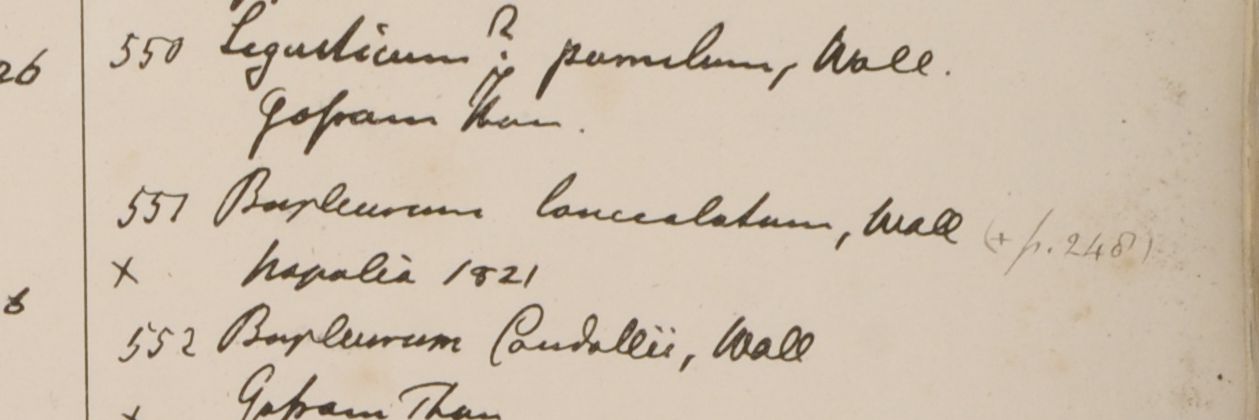 26 550 Ligusticum ? pumilum, Wall.
Gossam Than.
551 Bupleurum lanceolatum, Wall (+ p. 248)
x Napalia 1821
6
552 Bupleurum Candollii, Wall
x Gossam Than